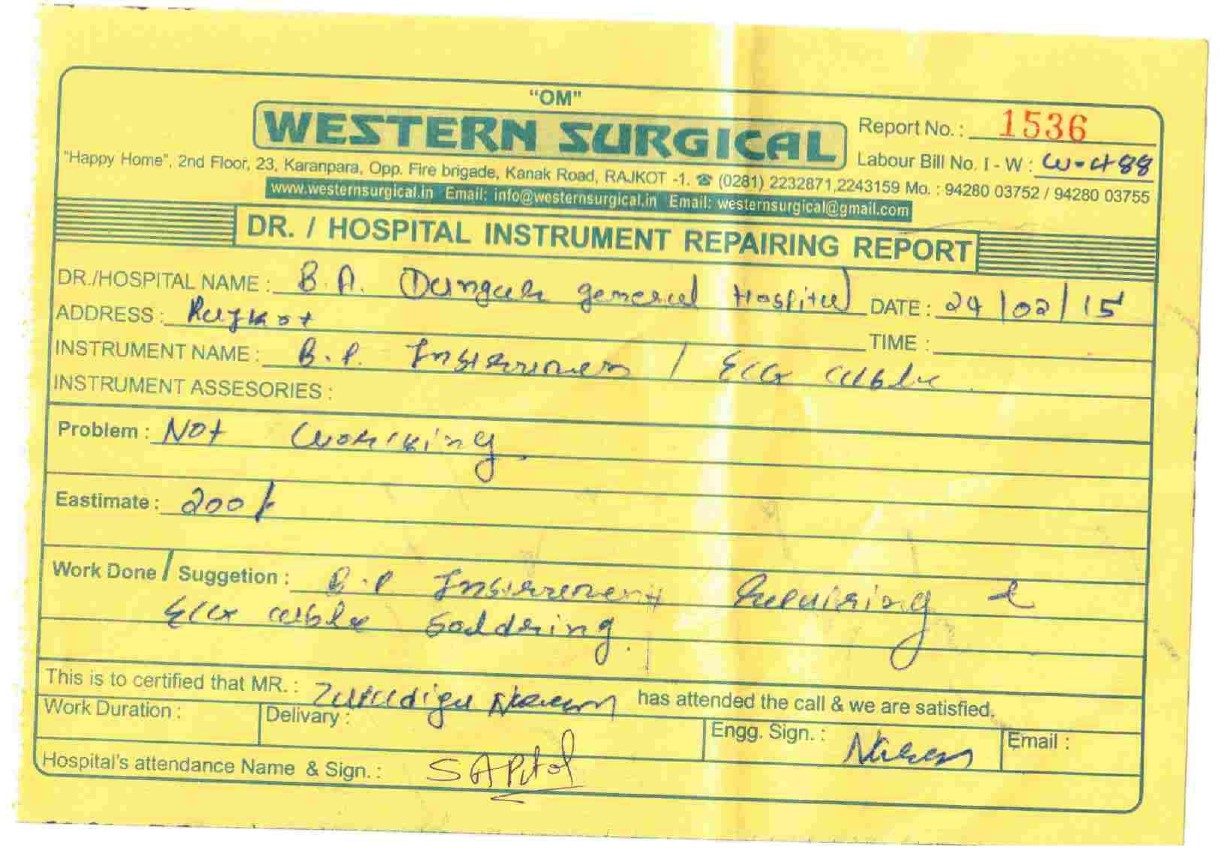 "OM"
WESTERN SURGICAL
Report No. : 1536
Labour Bill No. I - W : W-488
"Happy Home", 2nd Floor, 23, Karanpara, Opp. Fire brigade, Kanak Road, RAJKOT -1. ☎ (0281) 2232871,2243159 Mo. : 94280 03752 / 94280 03755
www.westernsurgical.in Email: info@westernsurgical.in Email: westernsurgical@gmail.com
DR. / HOSPITAL INSTRUMENT REPAIRING REPORT
DR./HOSPITAL NAME : B.A. general Hospital DATE : 24/02/15
ADDRESS : Rajkot TIME :
INSTRUMENT NAME : B.P. / ECG cable
INSTRUMENT ASSESORIES :
Problem : Not working
Eastimate : 200/-
Work Done / Suggetion : B.P Repairing &
ECG cable Soldering.
This is to certified that MR. : has attended the call & we are satisfied.
Work Duration : Delivary : Engg. Sign. : Email :
Hospital's attendance Name & Sign. :